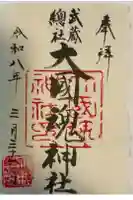 奉拝
武蔵
總社
大國魂神社
令和八年
三月二十